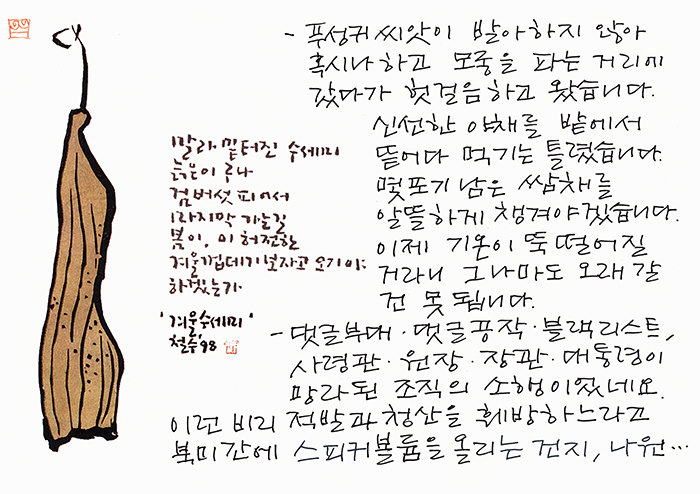 - 푸성귀 씨앗이 발아하지 않아
혹시나 하고 모종을 파는 거리에
갔다가 헛걸음하고 왔습니다.
신선한 야채를 밭에서
뜯어다 먹기는 틀렸습니다.
몇포기 남은 쌈채를
알뜰하게 챙겨야겠습니다.
이제 기온이 뚝 떨어질
거라니 그나마도 오래 갈
건 못됩니다.
말라 밑터진 수세미
늙은이로나
검버섯 피어서
마지막 가는 길
봄이, 이 허전한
겨울 껍데기 보자고 오기야
하겠는가
'겨울수세미'
철수 98
- 댓글부대·댓글공작·블랙리스트,
사령관·원장·장관·대통령이
망라된 조직의 소행이었네요.
이런 비리 적발과 청산을 훼방하느라고
북미간에 스피커볼륨을 올리는 건지, 나원…